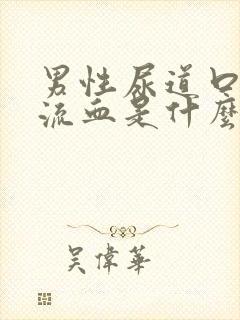 男性尿道口
流血是什麼
吳偉華